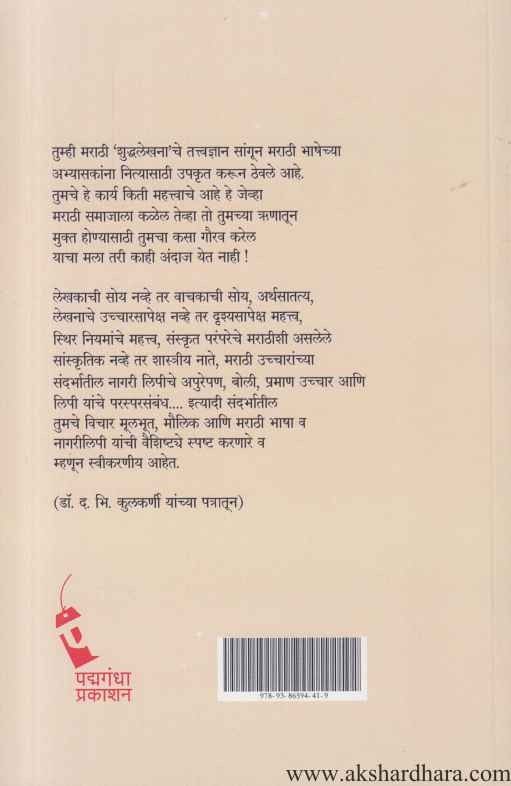 तुम्ही मराठी ‘शुद्धलेखना’चे तत्त्वज्ञान सांगून मराठी भाषेच्या
अभ्यासकांना नित्यासाठी उपकृत करून ठेवले आहे.
तुमचे हे कार्य किती महत्त्वाचे आहे हे जेव्हा
मराठी समाजाला कळेल तेव्हा तो तुमच्या ऋणातून
मुक्त होण्यासाठी तुमचा कसा गौरव करेल
याचा मला तरी काही अंदाज येत नाही !
लेखकाची सोय नव्हे तर वाचकाची सोय, अर्थसातत्य,
लेखनाचे उच्चारसापेक्ष नव्हे तर दृश्यसापेक्ष महत्त्व,
स्थिर नियमांचे महत्त्व, संस्कृत परंपरेचे मराठीशी असलेले
सांस्कृतिक नव्हे तर शास्त्रीय नाते, मराठी उच्चारांच्या
संदर्भातील नागरी लिपीचे अपुरेपण, बोली, प्रमाण उच्चार आणि
लिपी यांचे परस्परसंबंध.... इत्यादी संदर्भातील
तुमचे विचार मूलभूत, मौलिक आणि मराठी भाषा व
नागरीलिपी यांची वैशिष्ट्ये स्पष्ट करणारे व
म्हणून स्वीकरणीय आहेत.
(डॉ. द. भि. कुलकर्णी यांच्या पत्रातून)
पद्मगंधा
प्रकाशन
978-93-86594-41-9
www.akshardhara.com